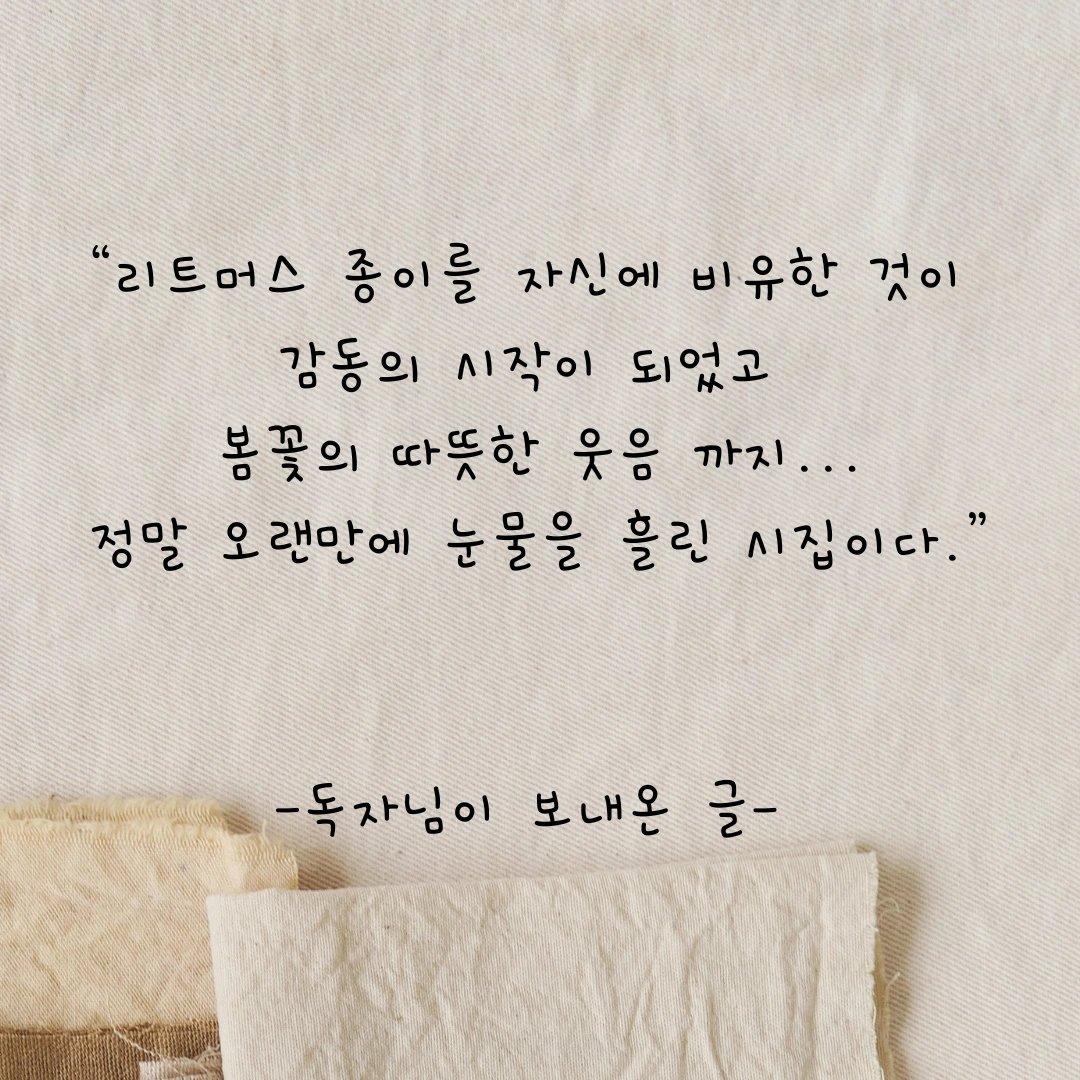 “리트머스 종이를 자신에 비유한 것이
감동의 시작이 되었고
봄꽃의 따뜻한 웃음 까지...
정말 오랜만에 눈물을 흘린 시집이다.”
-독자님이 보내온 글-